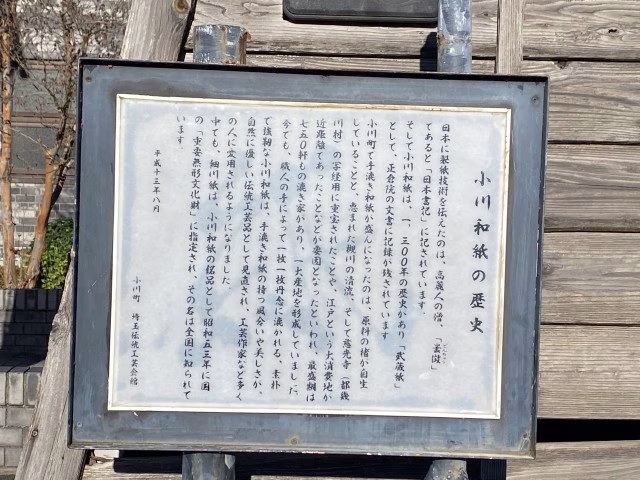 小川和紙の歴史
日本に製紙技術を伝えたのは、高麗人の僧、「曇徴」
であると「日本書記」に記されています。
そして小川和紙は、一、三〇〇年の歴史があり「武蔵紙」
として、正倉院の文書に記録が残されています
小川町で手漉き和紙が盛んになったのは、原料の楮が自生
していることと、恵まれた槻川の清流、そして慈光寺（都幾
川村）の写経用に重宝されたことや、江戸という大消費地か
近距離であったことなどが要因となったといわれ、最盛期は
七五〇軒もの漉き家があり、一大産地を形成していました。
今でも、職人の手によって一枚一枚丹念に漉かれる、素朴
で強靭な小川和紙は、手漉き和紙の持つ風合いや美しさが、
自然に優しい伝統工芸品として見直され、工芸作家など多く
の人に愛用されるようになりました。
中でも、細川紙は、小川和紙の銘品として昭和五三年に国
の「重要無形文化財」に指定され、その名は全国に知られて
います。
平成十三年八月
小川町　埼玉伝統工芸会館